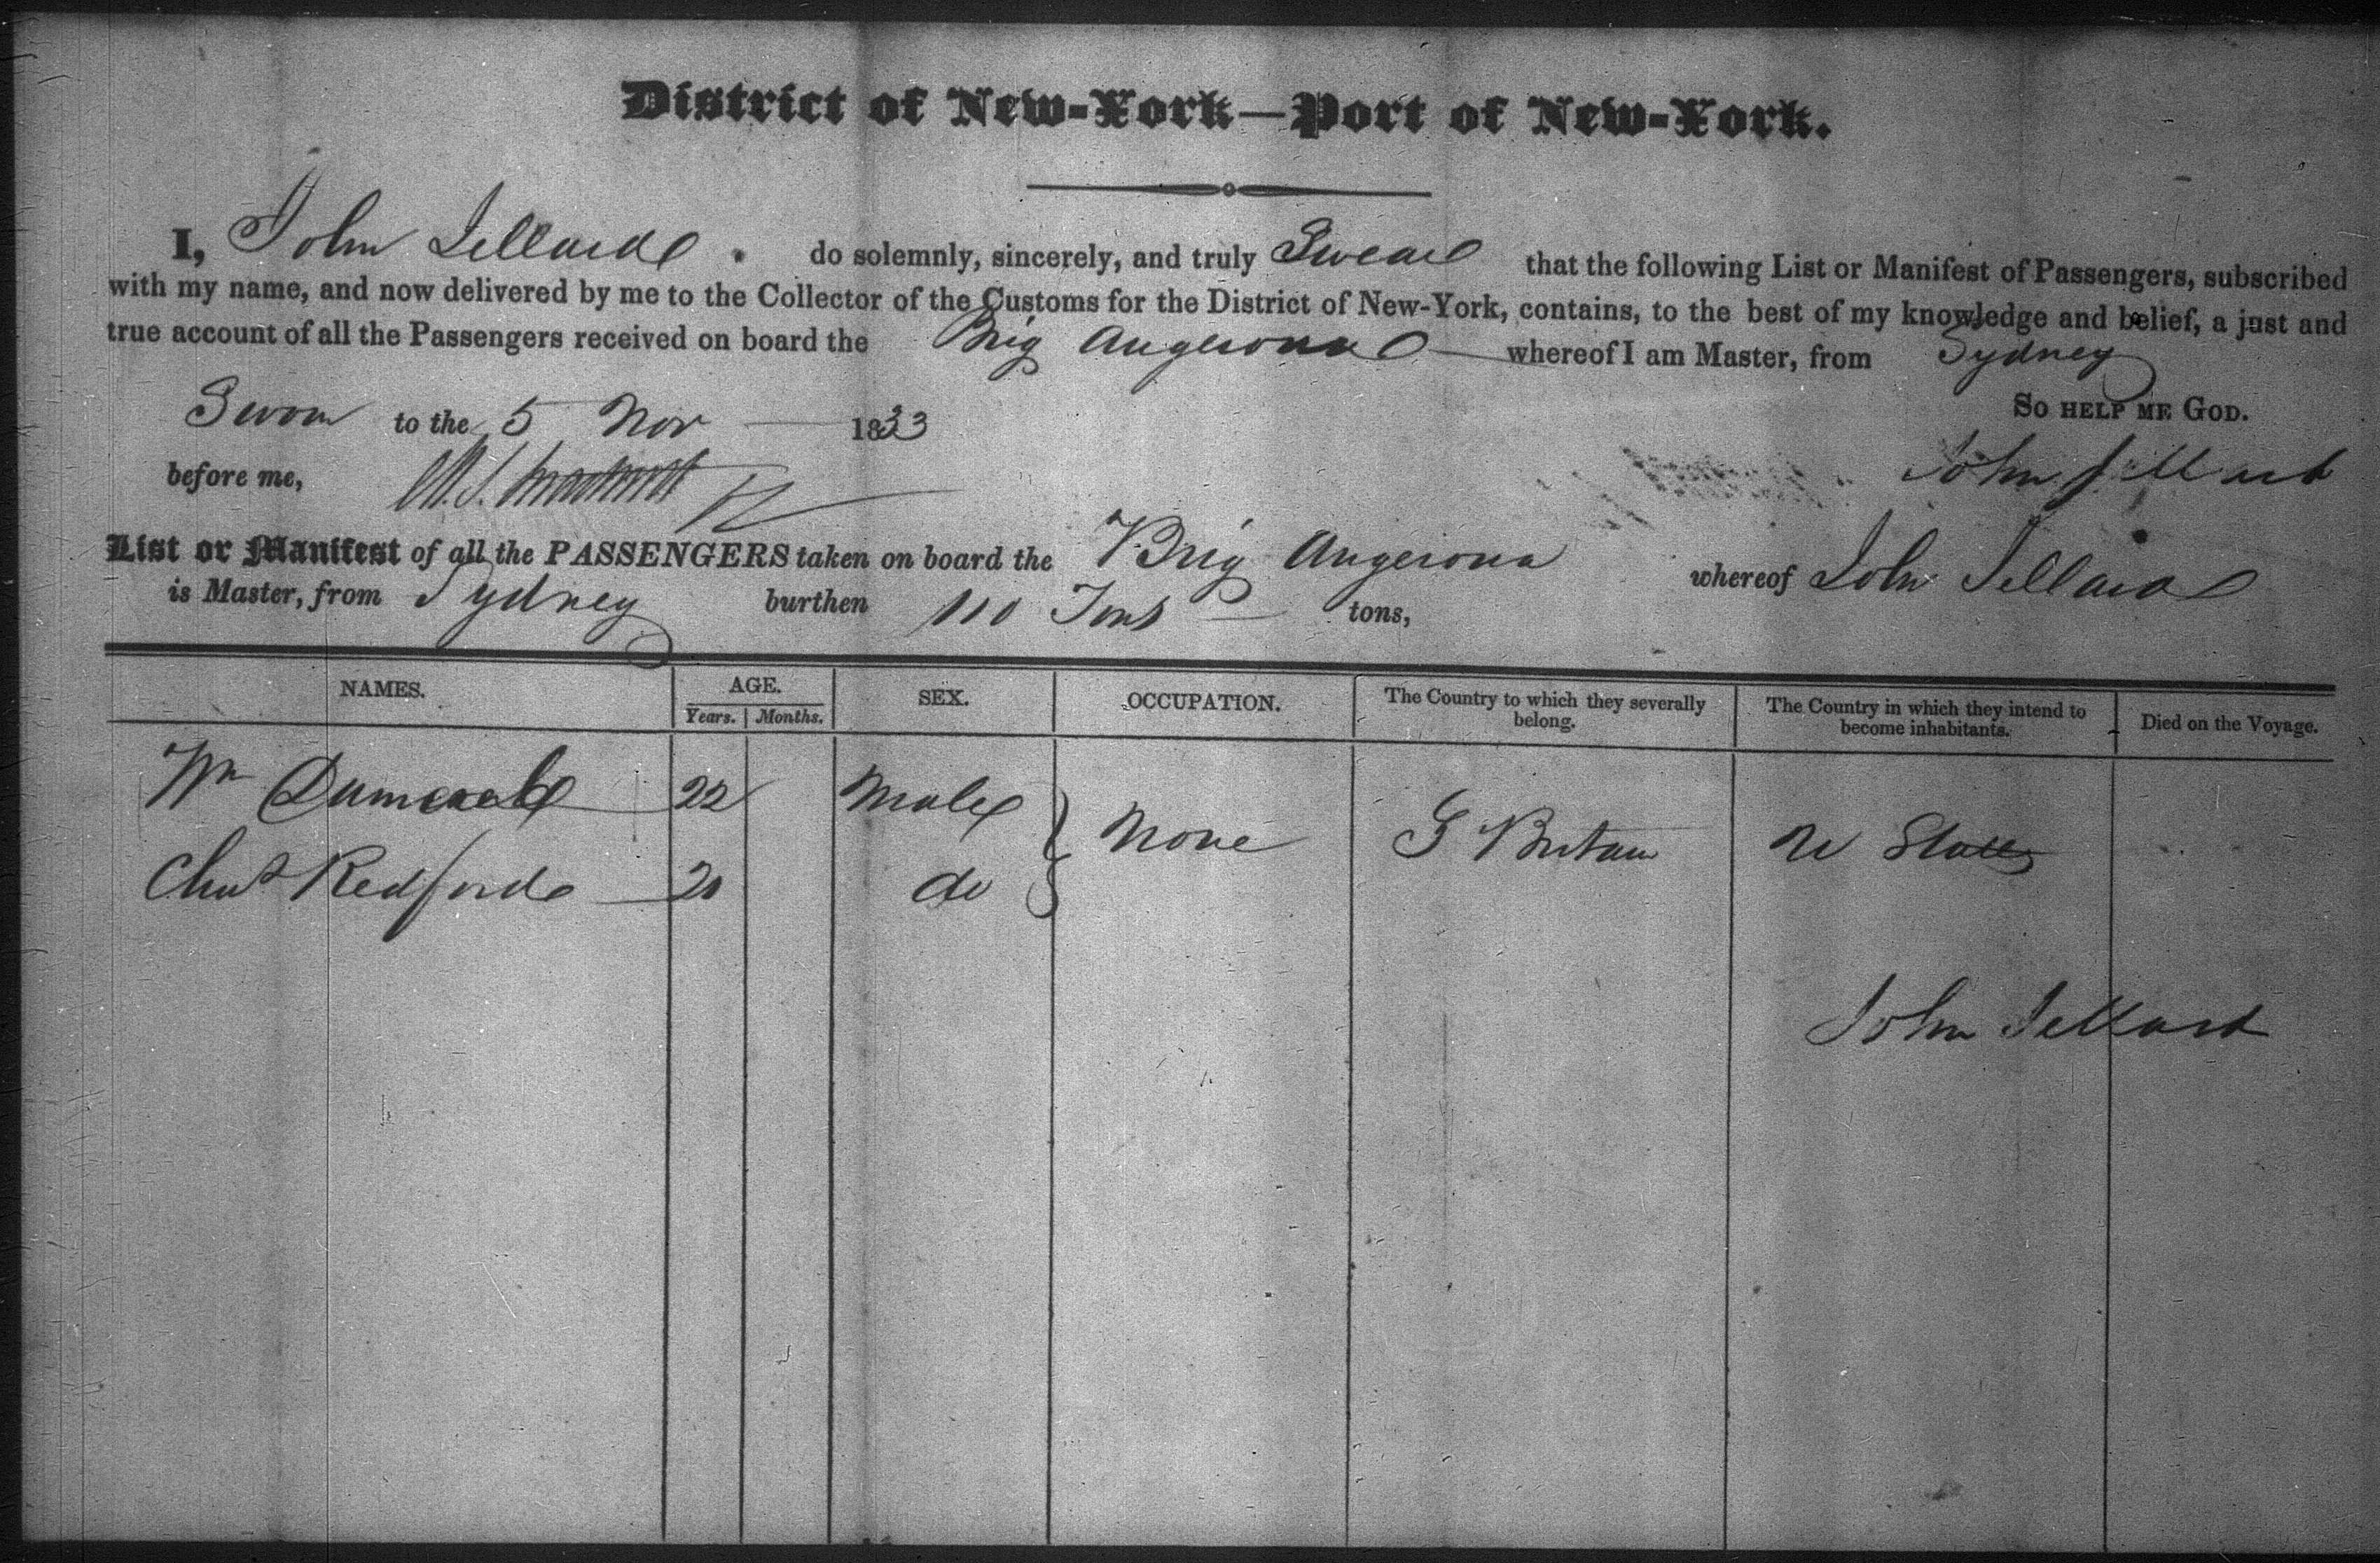 District of New-York—Port of New-York.
I, John Jellard do solemnly, sincerely, and truly Swear that the following List or Manifest of Passengers, subscribed
with my name, and now delivered by me to the Collector of the Customs for the District of New-York, contains, to the best of my knowledge and belief, a just and
true account of all the Passengers received on board the Brig Angerona whereof I am Master, from Sydney
So help me God.
Sworn to the 5 Nov 1833
John Jellard
before me,
List or Manifest of all the PASSENGERS taken on board the Brig Angerona whereof John Jellard
is Master, from Sydney burthen 110 Tons tons,
NAMES. AGE. SEX. OCCUPATION. The Country to which they severally belong. The Country in which they intend to become inhabitants. Died on the Voyage.
Years. Months.
Wm 22 Male None G Britain U States
Chas Redford 20 do
John Jellard